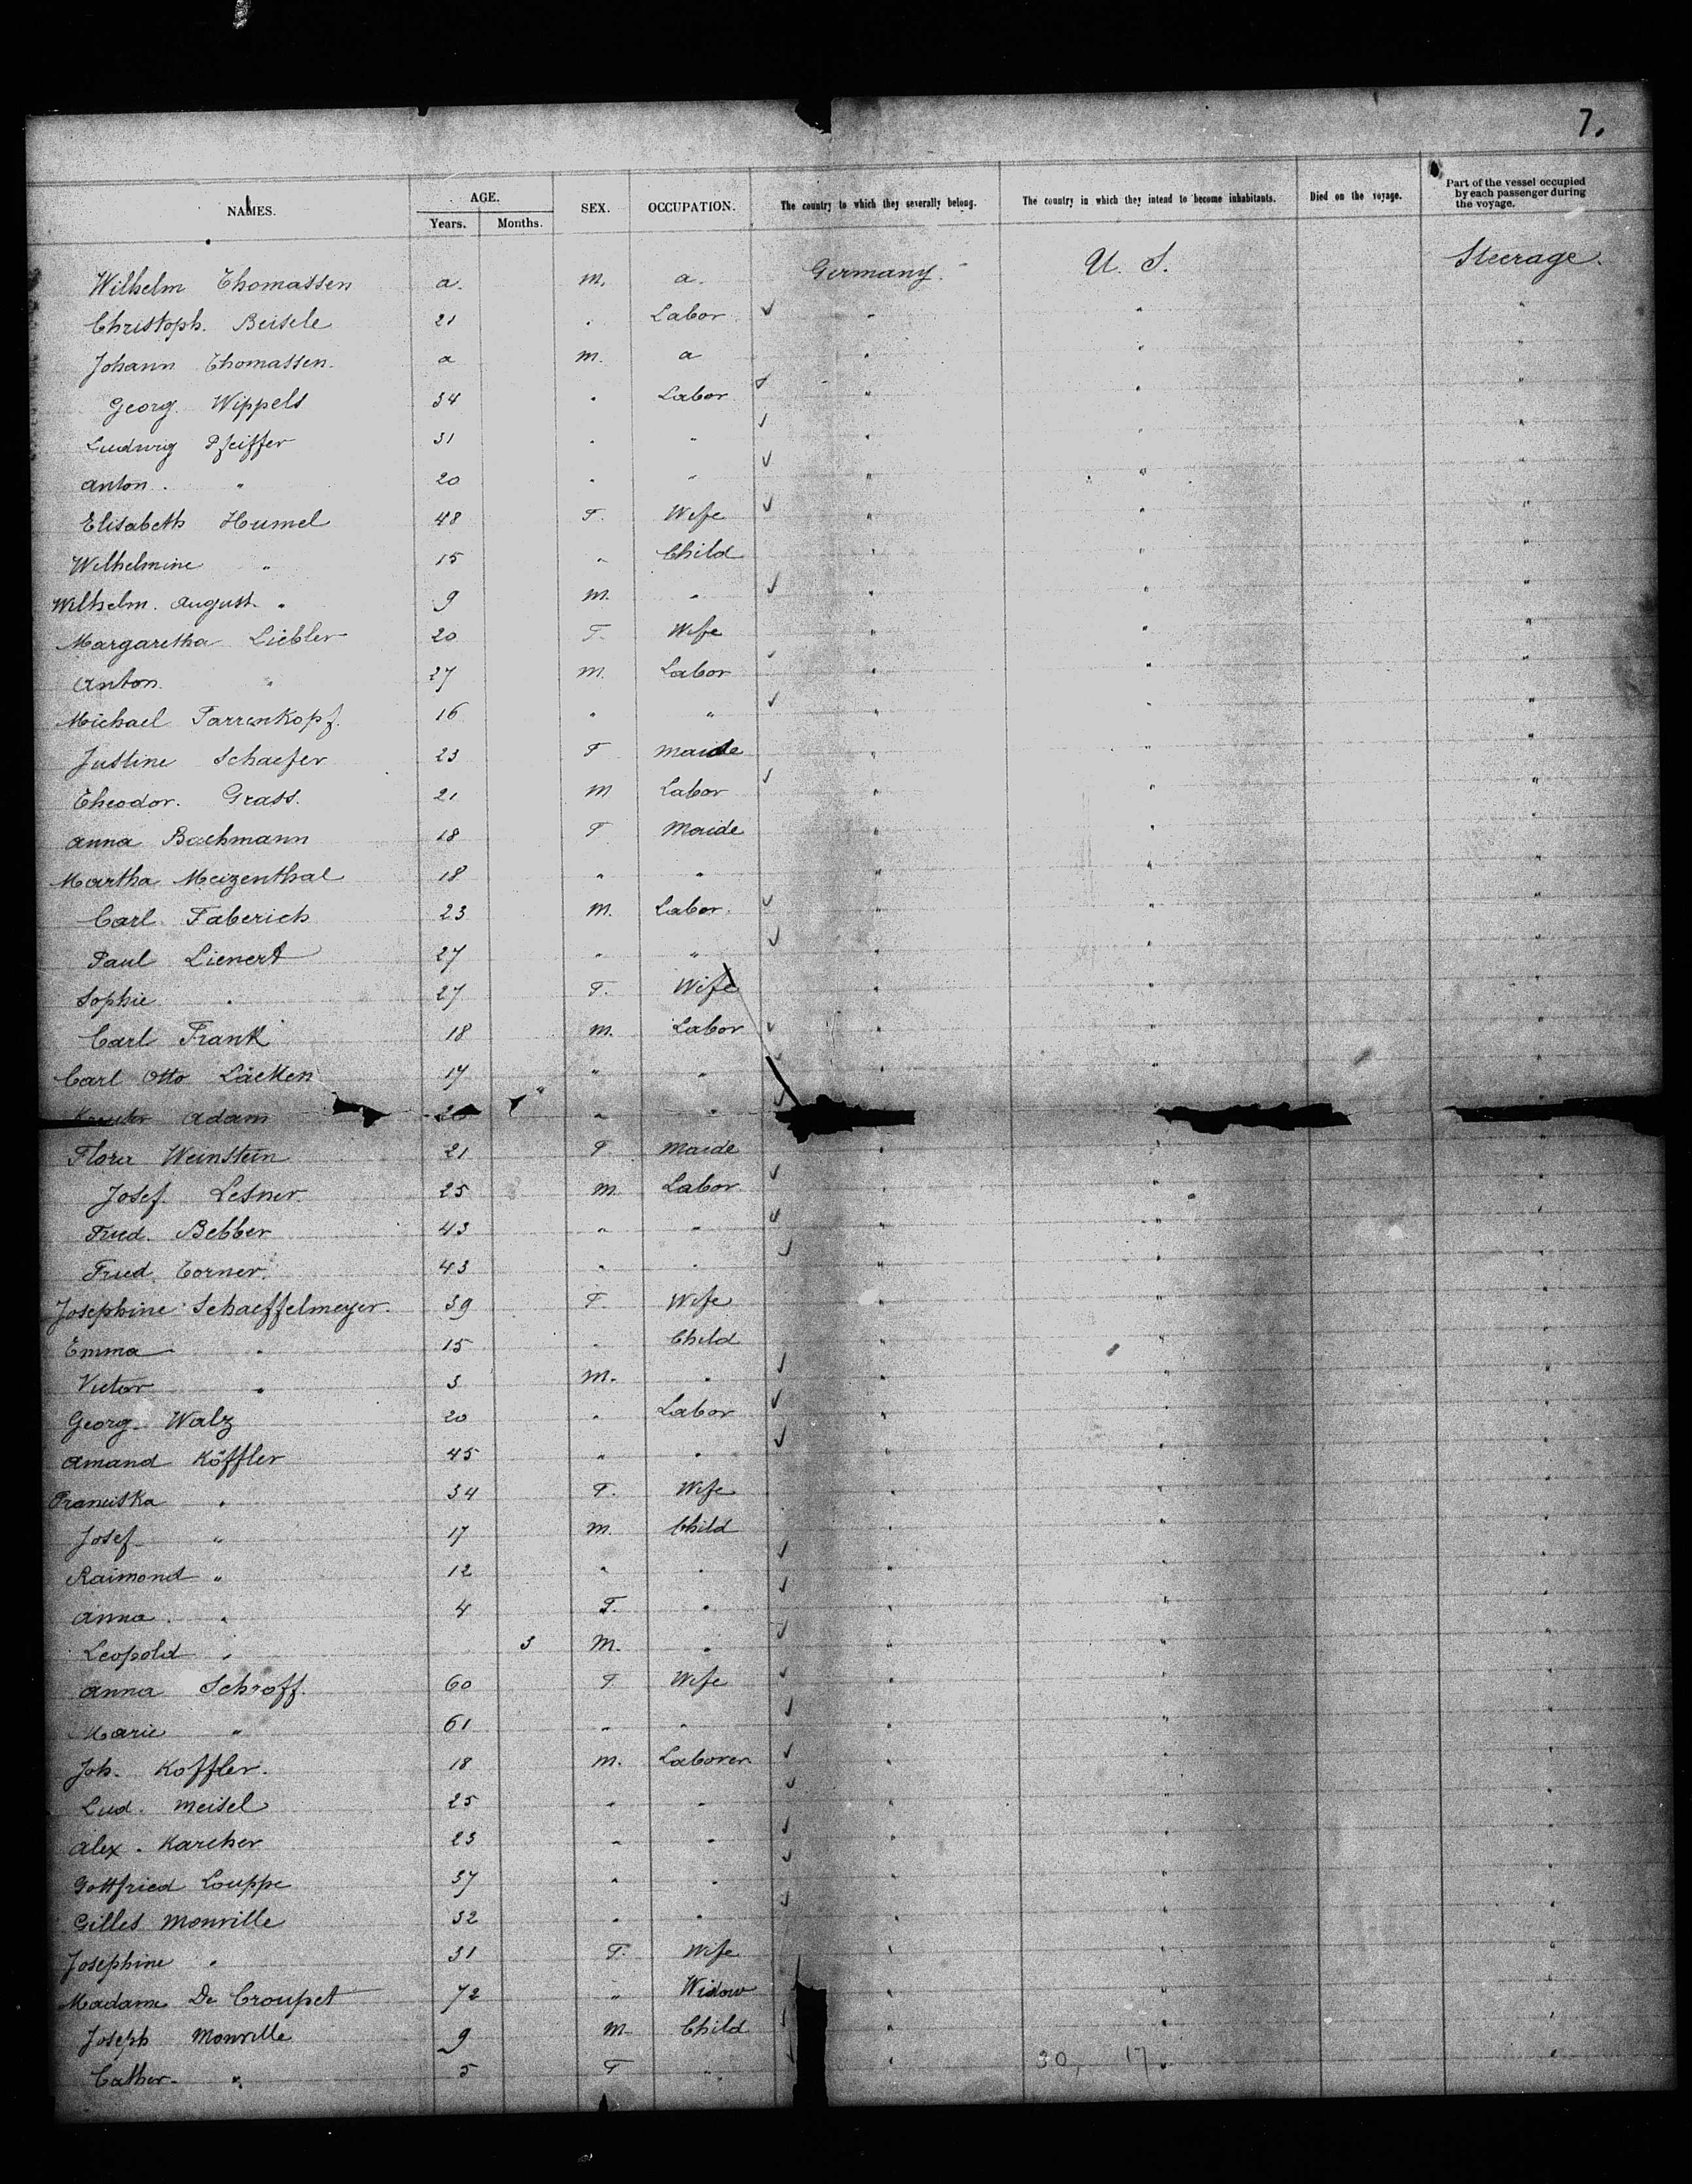 7.
NAMES. AGE. Years. Months. SEX. OCCUPATION. The country to which they severally belong. The country in which they intend to become inhabitants. Died on the voyage. Part of the vessel occupied by each passenger during the voyage.
Wilhelm Thomassen a. m. a. Germany. U. S. Steerage.
Christoph. Beisele 21 " Labor " " "
Johann Thomassen. a m. a " " "
Georg. Wippels 34 " Labor " " "
Ludwig Pfeiffer 31 " " " " "
Anton. " 20 " " " " "
Elisabeth Humel 48 F. Wife " " "
Wilhelmine " 15 " Child " " "
Wilhelm. August. " 9 m. " " " "
Margaretha Liebler 20 F. Wife " " "
Anton " 27 m. Labor " " "
Michael Farrenkopf. 16 " " " " "
Justine Schaefer 23 F Maide " " "
Theodor. Grass. 21 m Labor " " "
Anna Bachmann 18 F Maide " " "
Martha Meizenthal 18 " " " " "
Carl Faberich 23 m. Labor. " " "
Paul Lienert 27 " " " " "
Sophie " 27 F. Wife " " "
Carl Frank 18 m. Labor " " "
Carl Otto Läcken 17 " " " " "
Adam " "
Flora Weinstein 21 F Maide " " "
Josef Lesner 25 m Labor " " "
Fried. Bebber 43 " " " " "
Fried. Corner. 43 " " " " "
Josephine Schaeffelmeyer. 39 F. Wife " " "
Emma " 15 " Child " " "
Victor " 3 m. " " " "
Georg. Walz 20 " Labor " " "
Amand Köffler 45 " " " " "
Franciska " 34 F. Wife " " "
Josef " 17 m. Child " " "
Raimond " 12 " " " " "
Anna. " 4 F. " " " "
Leopold " 3 M. " " " "
Anna Schroff. 60 F Wife " " "
Marie " 61 " " " " "
Joh. Koffler. 18 m. Laborer " " "
Lud. Meisel 25 " " " " "
Alex. Karcher 23 " " " " "
Gottfried Louppe 37 " " " " "
Gilles Monville 32 " " " " "
Josephine " 31 F. Wife " " "
Madame De Croupet 72 " Widow " " "
Joseph Monville 9 m Child " " "
Cather. " 5 F " " " "
30, 17